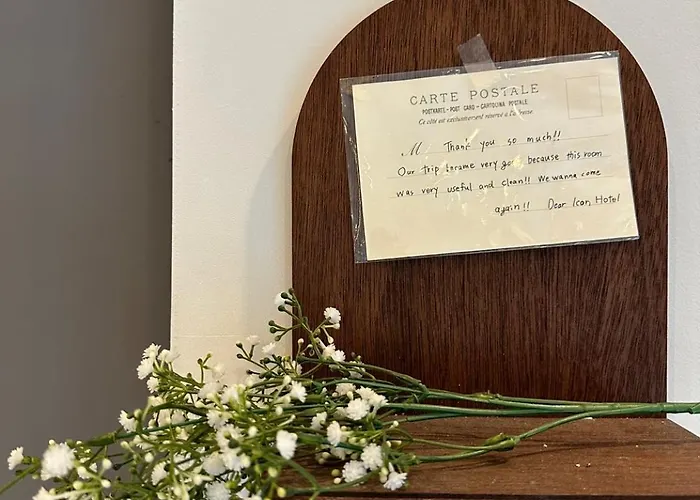 CARTE POSTALE
POSTKARTE - POST CARD - CARTOLINA POSTALE
Ce côté est exclusivement réservé à l'adresse.
M Thank you so much!!
Our trip became very good because this room
was very useful and clean!! We wanna come
again!! Dear Icon HOTEL